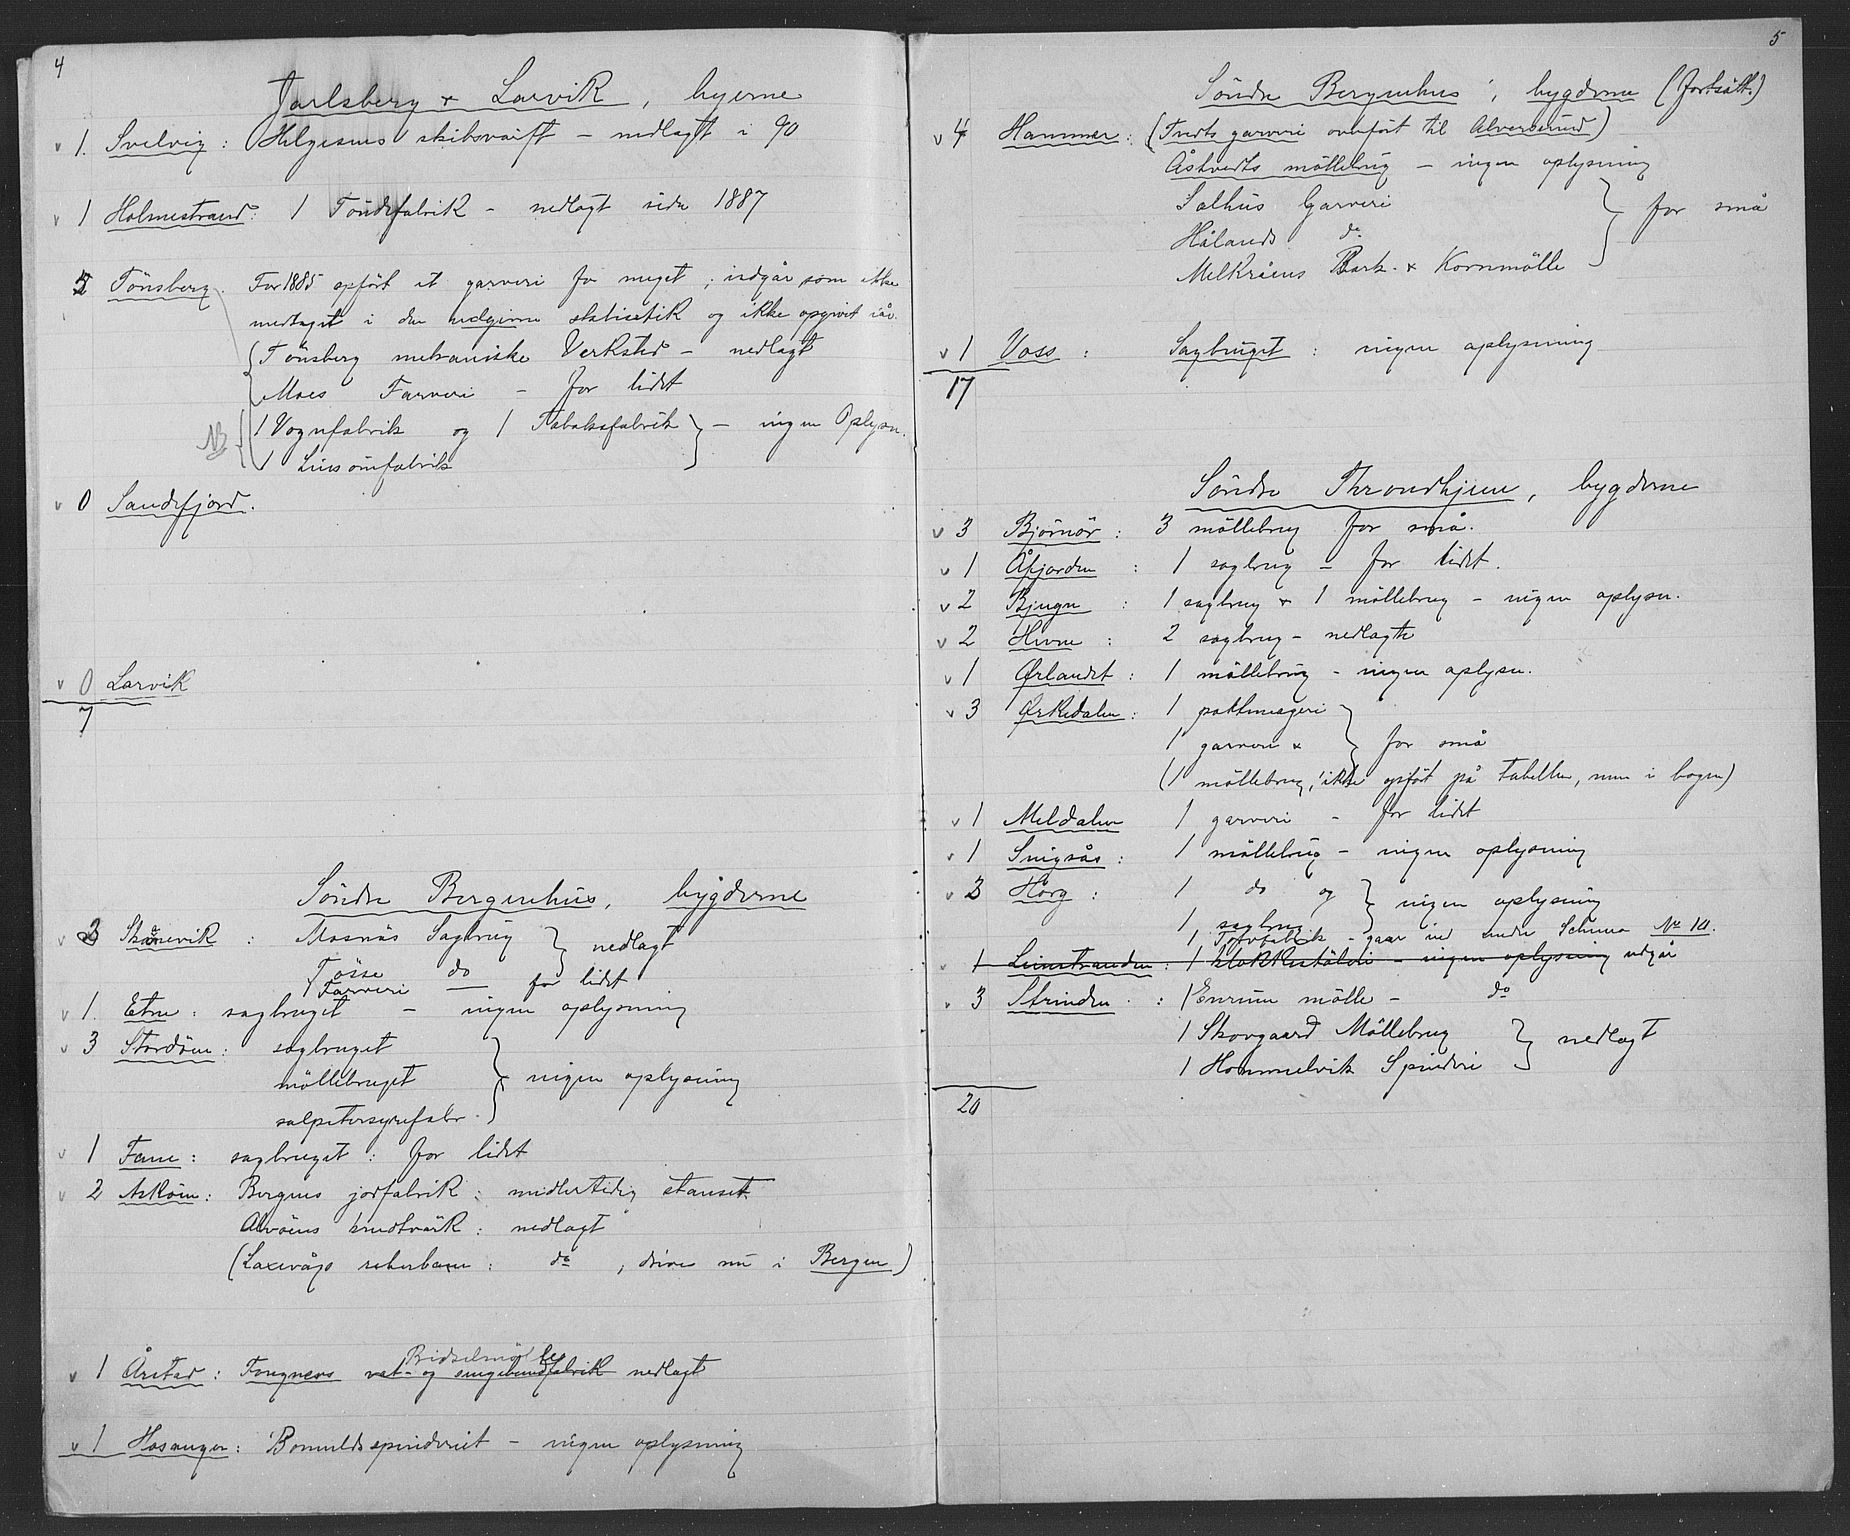 4
Jarlsberg & Larvik, byerne
v 1. Svelvig: Helgesens skibsværft – nedlagt i 90
v 1 Holmestrand: 1 Töndefabrik – nedlagt siden 1887
5 Tönsberg. For 1885 opfört et garveri for meget; indgår som ikke
medtaget i den udgivne statistik og ikke opgivet iår.
Tönsberg mekaniske Verksted – nedlagt
Moes Farveri – for lidet
NB 1 Vognfabrik og 1 Tobaksfabrik – ingen Oplysn.
1 Linsömfabrik
v 0 Sandefjord.
v 0 Larvik
7
Söndre Bergenhus, bygderne
v 3 Skånevik: Mosnäs Sagbrug
nedlagt
Tösse do
1 Farveri — for lidet
v 1. Etne: sagbruget – ingen oplysning
v 3 Stordöen: sagbruget
möllebruget ingen oplysning
salpetersyrefabr.
v 1 Fane: sagbruget: for lidet
v 2 Asköen: Bergens jodfabrik: midlertidig stanset
Alvöens krudtvärk: nedlagt
(Laxevågs reberbane: do, drives nu i Bergen)
Bridselmölle
v 1 Årstad: Fougners vat- og omgebundfabrik nedlagt
v 1 Hosanger: Bomuldsspinderiet – ingen oplysning
5
Söndre Bergenhus, bygderne (fortsätt.)
v 4 Hammer: (Tvedts garveri overfört til Alversund)
Åstvedts möllebrug – ingen oplysning
Salhus Garveri
Hålands do for små
Melkråens Bark- & Kornmölle
v 1 Voss: Sagbruget: ingen oplysning
17
Söndre Throndhjem, bygderne
v 3 Björnör: 3 möllebrug for små.
v 1 Åfjorden: 1 sagbrug – for lidet.
v 2 Bjugn: 1 sagbrug & 1 möllebrug – ingen oplysn.
v 2 Hevne: 2 sagbrug – nedlagte
v 1 Ørlandet: 1 möllebrug – ingen oplysn.
v 3 Ørkedalen: 1 pottmageri
1 garveri & for små
(1 möllebrug, ikke opfört på tabellen, men i bogen)
v 1 Meldalen 1 garveri – for lidet
v 1 Singsås: 1 möllebrug – ingen oplysning
v 3 Hörg: 1 do og
ingen oplysning
1 sagbrug
1 Torvfabrik – gaar ind under Schema No 10.
v 1 Leinstranden: 1 klokkestöberi – ingen oplysning udgår
v 3 Strinden: 1 Enrum mölle – do
1 Skovgaard Möllebrug
nedlagt
1 Hommelvik Spinderi
20